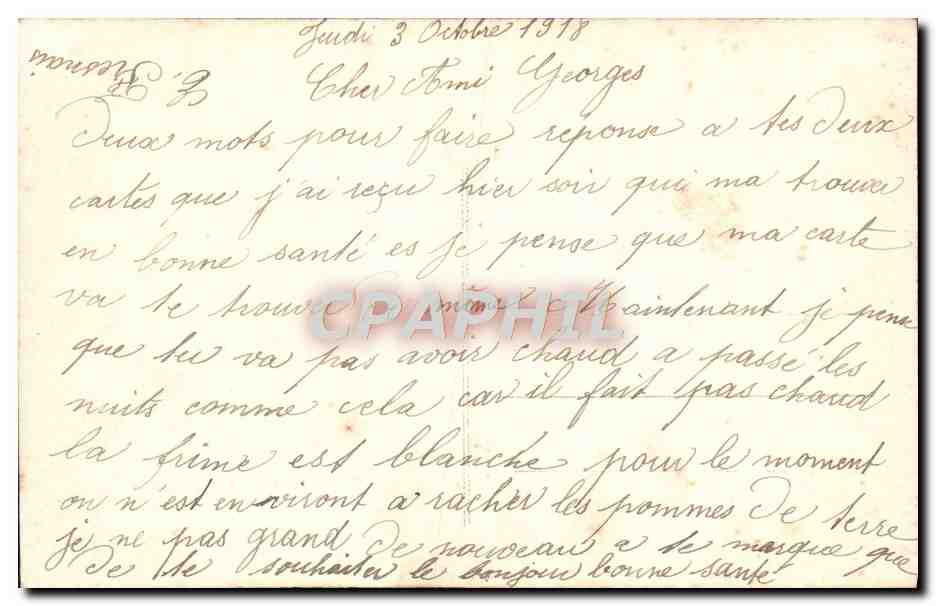 Jeudi 3 Octobre 1918
Cher Ami Georges
Deux mots pour faire reponse a tes deux
cartes que j'ai reçu hier soir qui ma trouvee
en bonne santé es je pense que ma carte
va te trouvé de même Maintenant je pense
que tu va pas avoir chaud a passé les
nuits comme cela car il fait pas chaud
la frime est blanche pour le moment
on n'est en viront a racher les pommes de terre
je ne pas grand de nouveau a te marque que
de te souhaiter le bonjour bonne sante
CPAPHIL